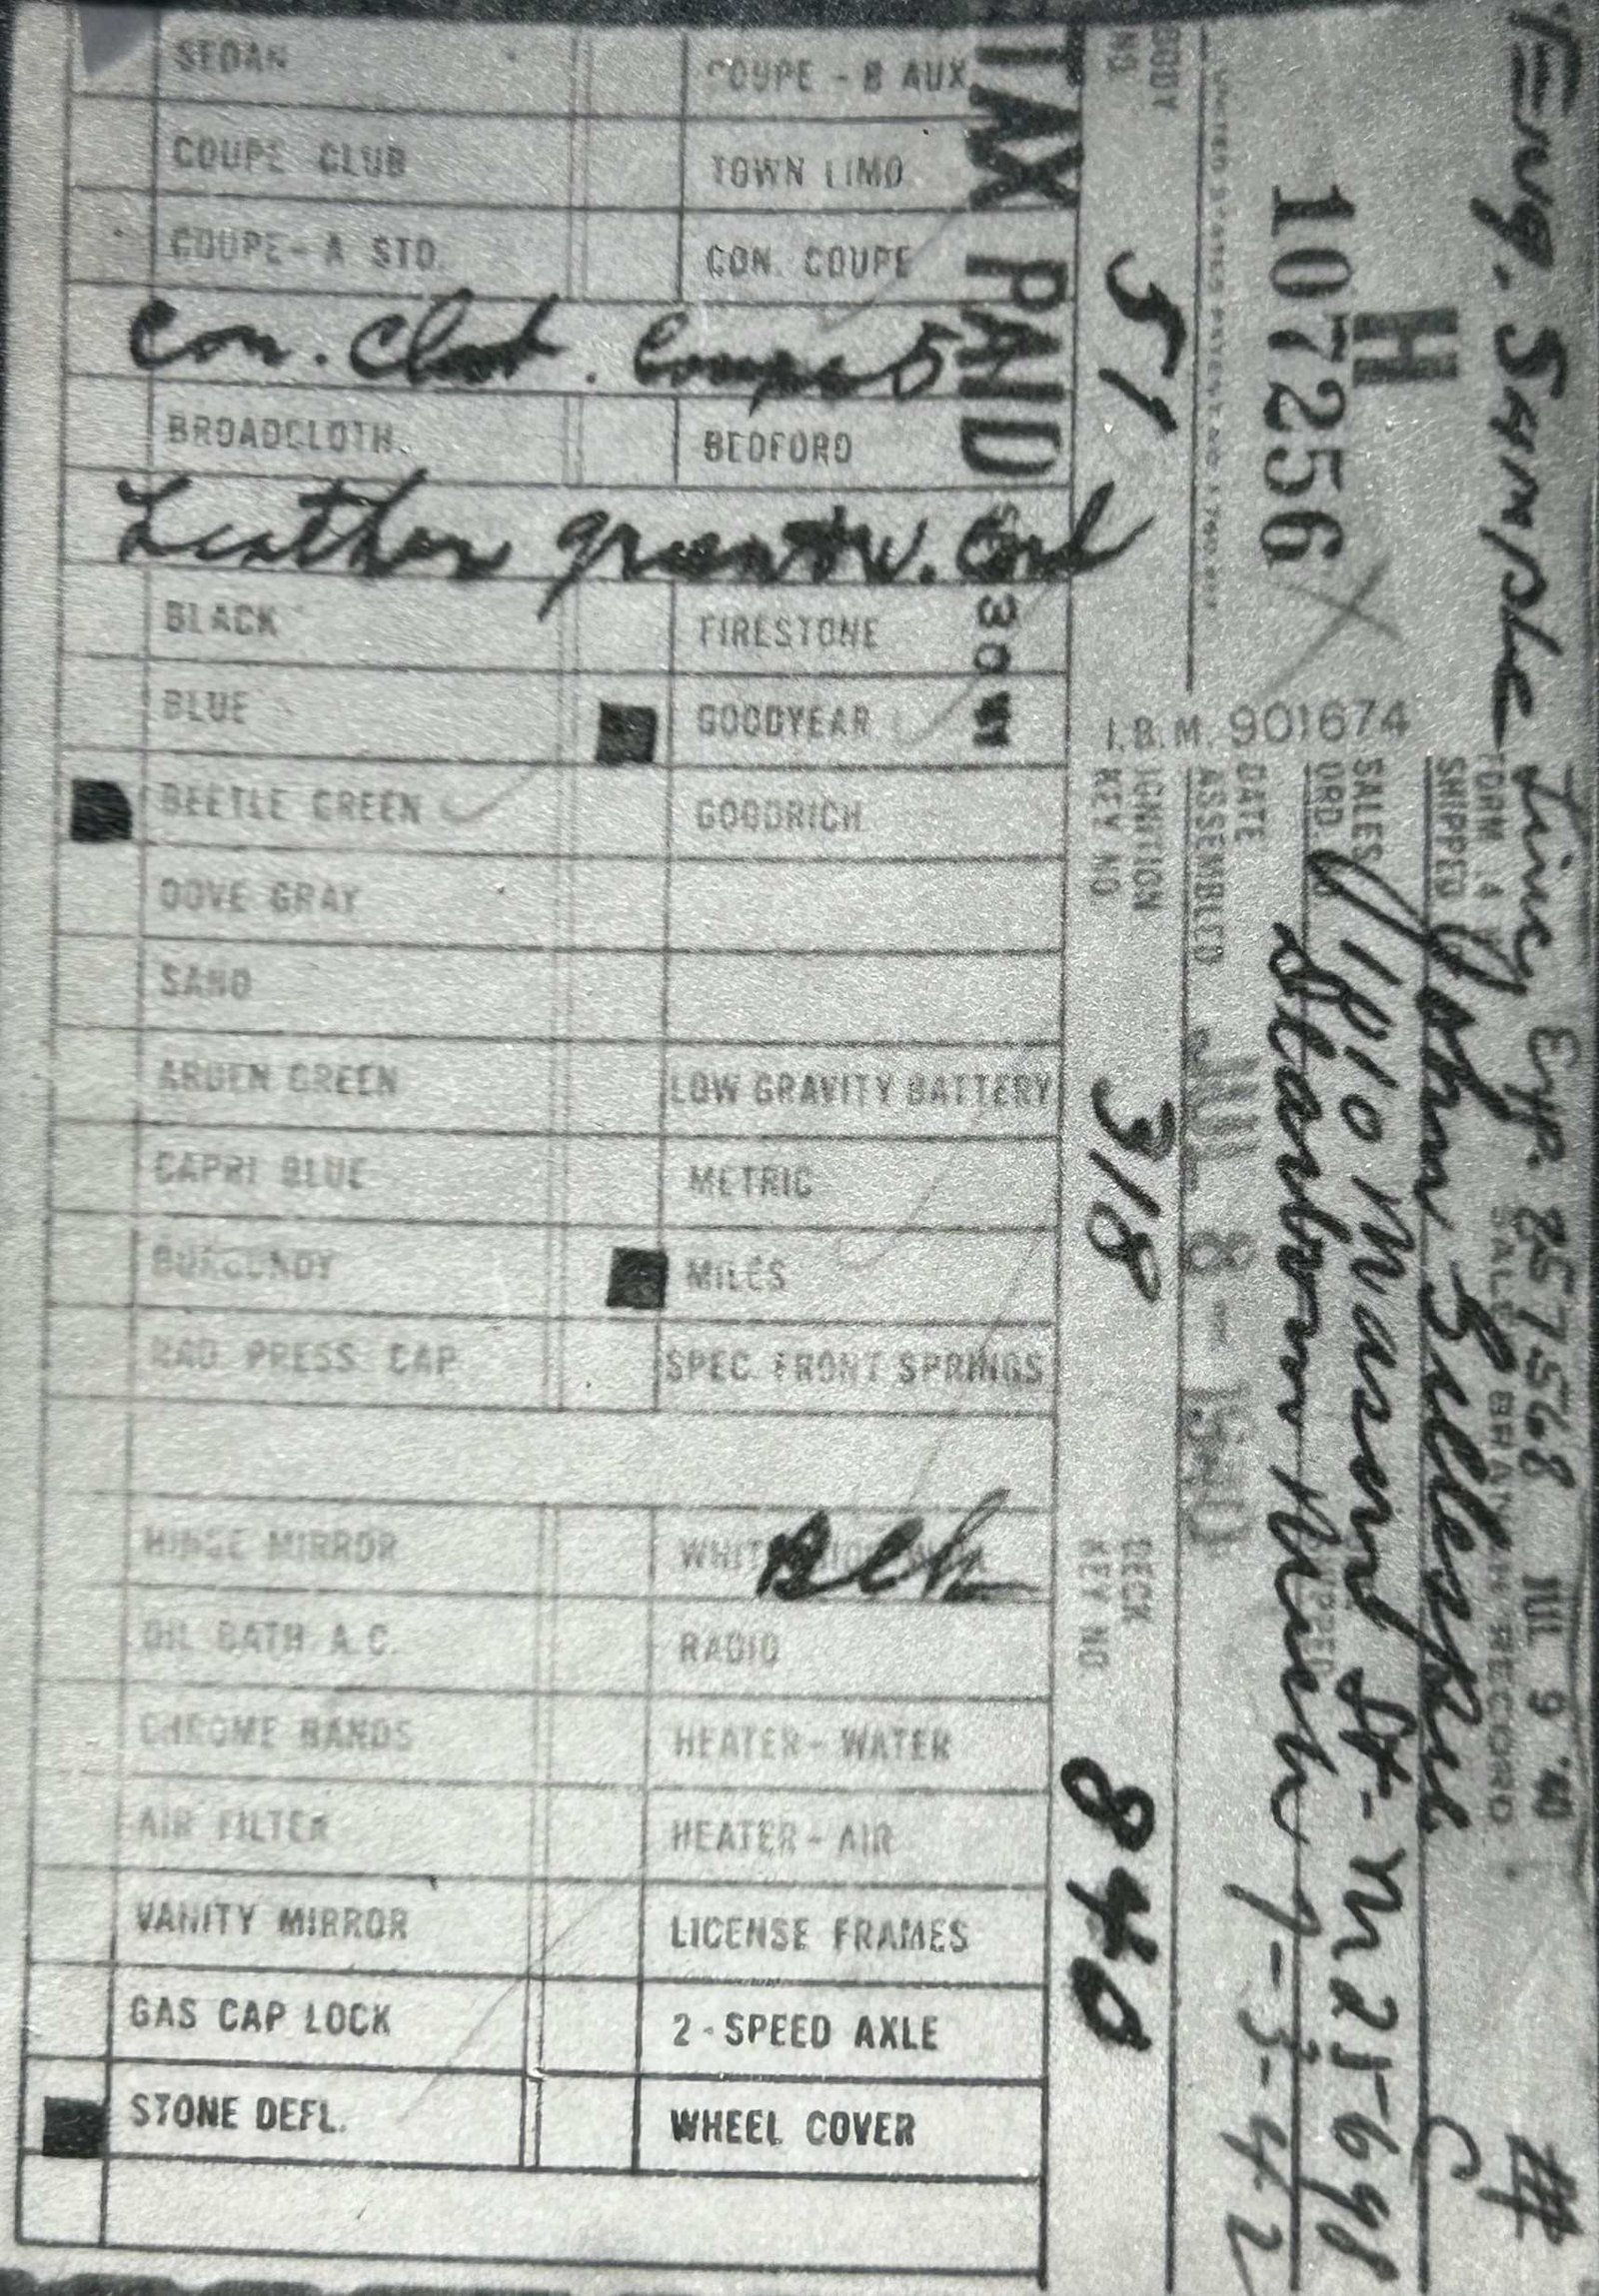 Eng. Sample Tire Exp. 857568 JUL 9 '40
FORM 4
SALES BRANCH RECORD
SHIPPED John Gillespie
C
H
107256
I.B.M. 901674
SALES
ORD.
1810 Mound St - M 25698
Dearborn Mich 7-3-42
UNITED STATES
DATE
ASSEMBLED JUL 8 - 1940
BODY
NO. 51
IGNITION
KEY NO. 318
DECK
KEY NO. 840
TAX PAID
SEDAN COUPE - B AUX
COUPE CLUB TOWN LIMO
COUPE - A STD. CON. COUPE
Con. Club. Coupe 5
BROADCLOTH BEDFORD
Leather green W. Cord
BLACK FIRESTONE
BLUE GOODYEAR
BEETLE GREEN GOODRICH
DOVE GRAY
SAND
ARDEN GREEN LOW GRAVITY BATTERY
CAPRI BLUE METRIC
BURGUNDY MILES
RAD PRESS CAP SPEC. FRONT SPRINGS
HINGE MIRROR WHITE
OIL BATH A.C. RADIO
CHROME BANDS HEATER - WATER
AIR FILTER HEATER - AIR
VANITY MIRROR LICENSE FRAMES
GAS CAP LOCK 2 - SPEED AXLE
STONE DEFL. WHEEL COVER